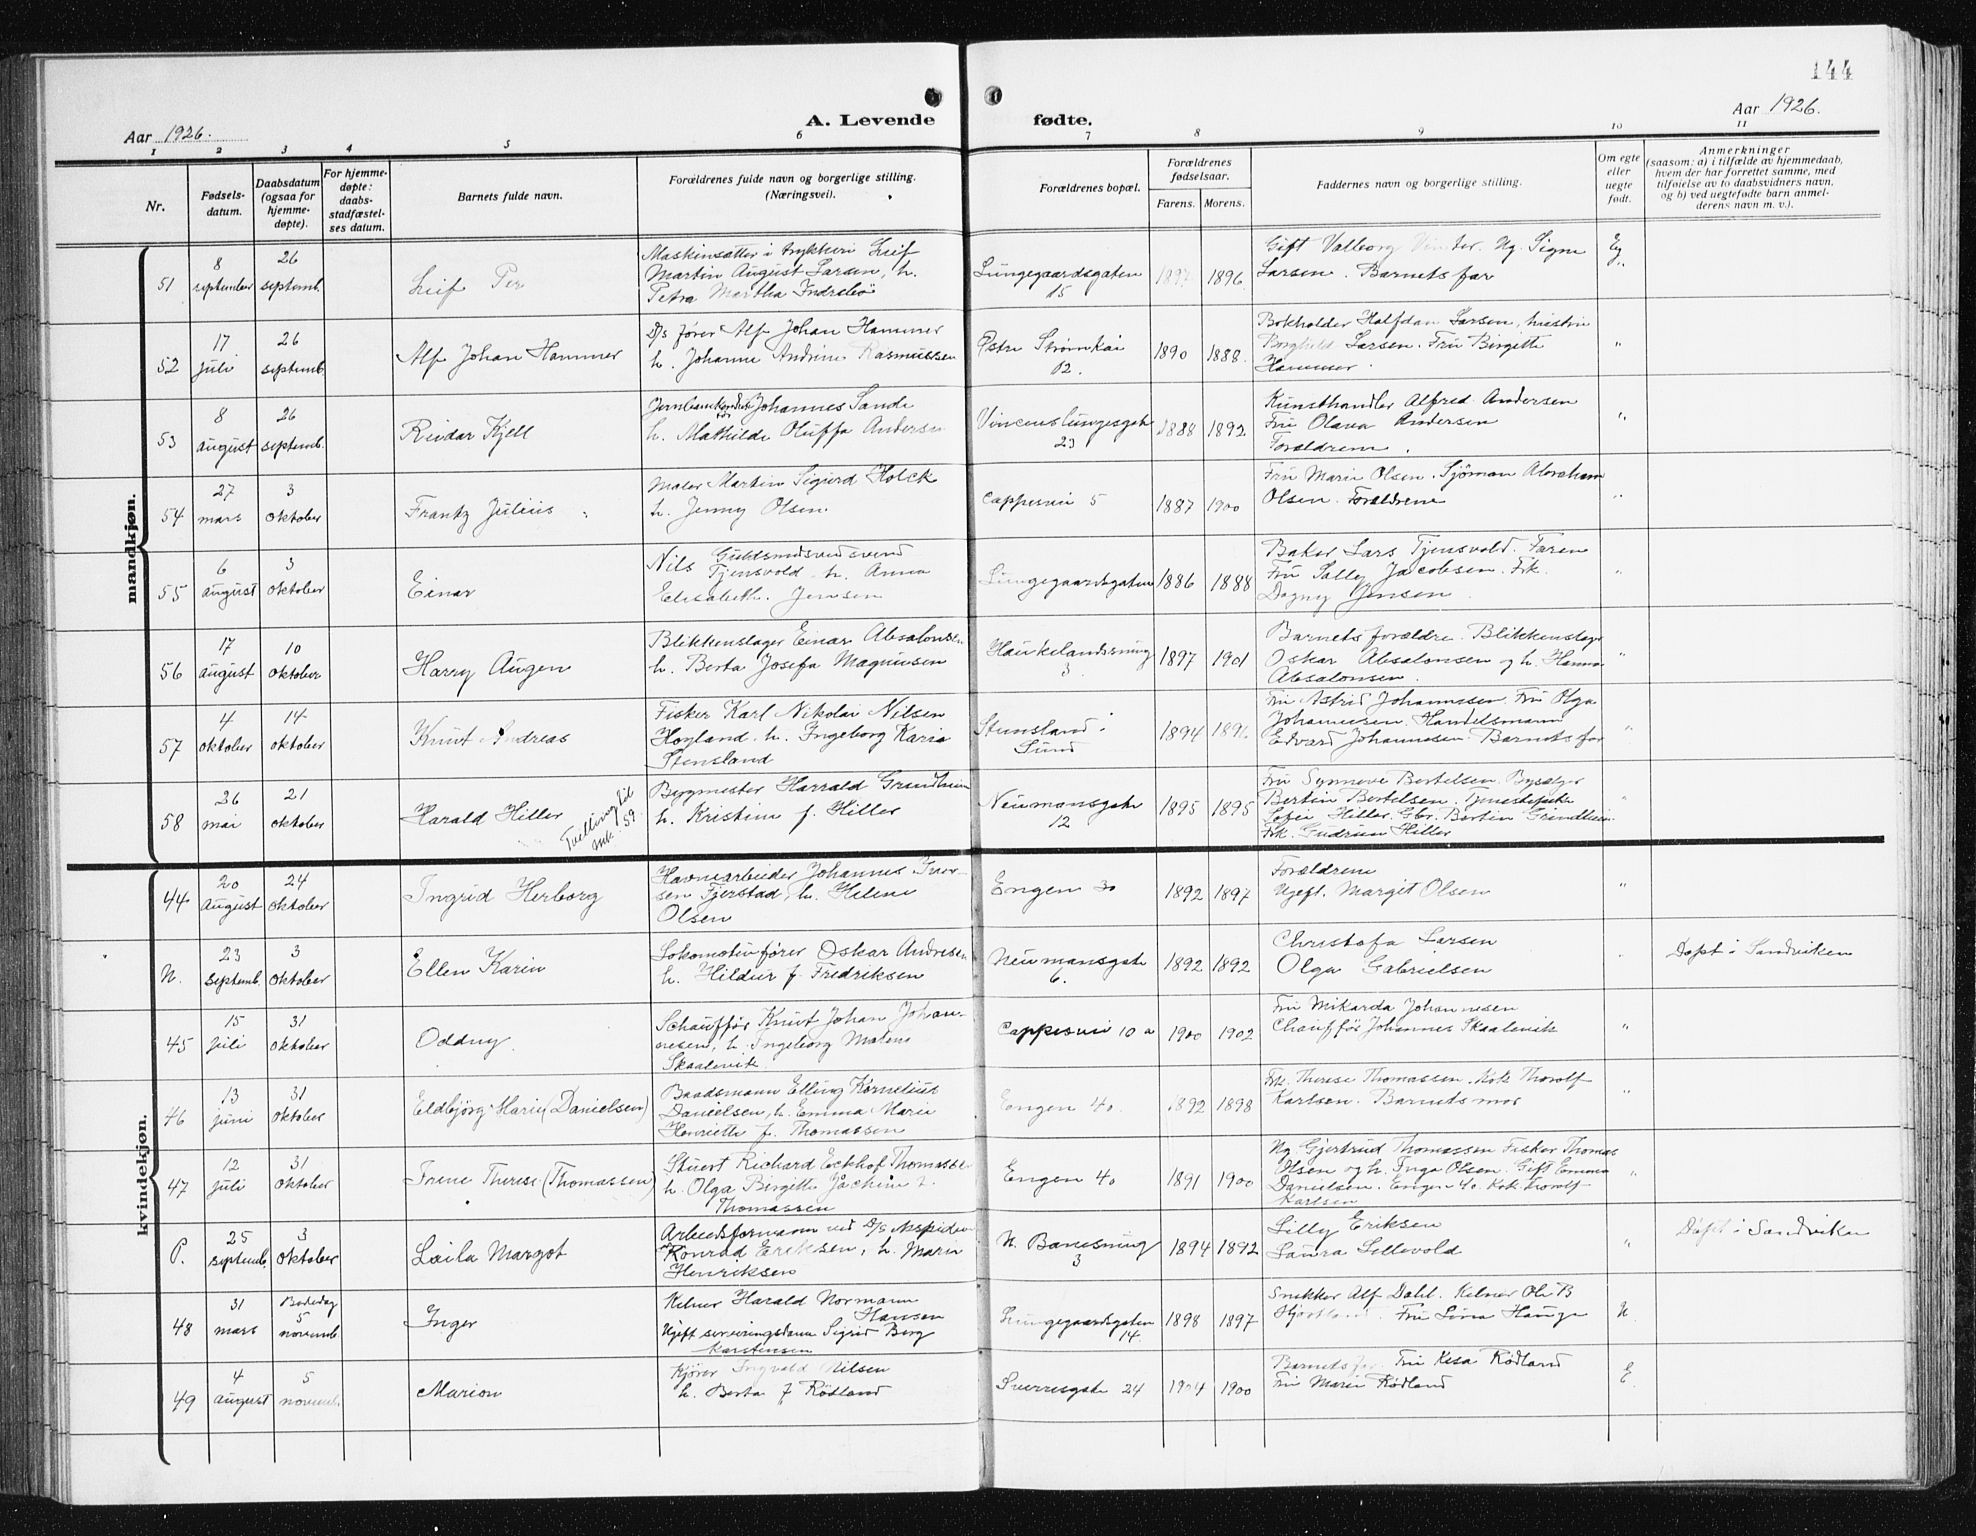 144
Aar 1926.
A. Levende
fødte.
Aar 1926.
1 2 3 4 5 6 7 8 9 10 11
Nr.
Fødsels-
datum.
Daabsdatum
(ogsaa for
hjemme-
døpte).
For hjemme-
døpte:
daabs-
stadfæstel-
ses datum.
Barnets fulde navn.
Forældrenes fulde navn og borgerlige stilling.
(Næringsvei).
Forældrenes bopæl.
Forældrenes
fødselsaar.
Farens. Morens.
Faddernes navn og borgerlige stilling.
Om egte
eller
uegte
født.
Anmerkninger
(saasom: a) i tilfælde av hjemmedaab,
hvem der har forrettet samme, med
tilføielse av to daabsvidners navn,
og b) ved uegtefødte barn anmel-
derens navn m. v.).
mandkjøn.
51
8
september
26
septemb.
Leif Per
Maskinsætter i trykkeri Leif
Martin August Larsen, h.
Petra Martha Indrebö
Lungegaardsgaten
15
1897 1896
Gift Valborg Ug. Signe
Larsen. Barnets far
Eg
52
17
juli
26
septemb.
Alf Johan Hammer
D/s fører Alf Johan Hammer
h. Johanne Andrine Rasmussen
Østre Strømkai
12.
1890 1888.
Bokholder Halfdan Larsen, hustru
Borghild Larsen. Fru Bergitte
Hammer.
"
53
8
august
26
septemb.
Reidar Kjell
Johannes Sande
h. Mathilde Oluffa Andersen
Vincenslungesgate
23
1888 1892
Kunsthandler Alfred Andersen
Fru Olava Andersen
Forældrene.
"
54
27
mars
3
oktober
Frantz Julius
Maler Martin Sigurd Holck
h. Jenny Olsen
Cappesvei 5
1887 1900
Fru Marie Olsen. Sjöman Abraham
Olsen. Forældrene
"
55
6
august
3
oktober
Einar
Guldsmedsvend
Nils Tjensvold h. Anna
Elisabeth. Jensen
Lungegaardsgaten
1886 1888
Baker Lars Tjensvold. Faren
Fru Sally Jacobsen. Frk.
Dagny Jensen
"
56
17
august
10
oktober
Harry Augen
Blikkenslager Einar Absalonsen
h. Berta Josefa Magnusen
Haukelandssving
3
1897 1901
Barnets forældre. Blikkenslager
Oskar Absalonsen og h. Hanna
Absalonsen.
"
57
4
oktober
14
oktober
Knut Andreas
Fisker Karl Nikolai Nilsen
Hoyland h. Ingeborg Karia
Stensland
Stensland i
Sund
1894
Fru Astrid Johannessen Fru Olga
Johannesen. Handelsmann
Edvard Johannesen Barnets far
"
58
26
mai
21
oktober
Harald Hiller
Tvilling til
mk. 59.
Bygmester Harrald Grindheim
h. Kristine f. Hiller
Neumansgate
12
1895 1895
Fru Synneve Bertelsen.
Bertin Bertelsen. Tjenestepike
Sofie Hiller. Gbr. Bertin Grindheim
Frk. Gudrun Hiller
"
kvindekjøn.
44
20
August
24
oktober
Ingrid Herborg
Havnearbeider Johannes Iver-
sen Tjerstad, h. Helene
Olsen
Engen 30
1892 1897
Forældrene
Ugift. Margit Olsen
"
N.
23
septemb.
3
oktober
Ellen Karin
Lokomotivfører Oskar Andresen
h. Hildur f. Fredriksen
Neumansgate
6.
1892 1892
Christofa Larsen
Olga Gabrielsen
"
Døpt i Sandviken
45
15
juli
31
oktober
Oddny
Schauffør Knut Johan Johan-
nesen, h. Ingeborg Malene
Skaalevik
Cappesvei 10 a
1900 1902
Fru Mikarda Johannesen
Chauffør Johannes Skaalevik
"
46
13
juni
31
oktober
Eldbjörg Marie (Danielsen)
Baadsmann Elling Kornelius
Danielsen, h. Emma Marie
Henriette f. Thomassen
Engen 40
1892 1898
Frk. Therese Thomassen. Kok Thorolf
Karlsen. Barnets mor
"
47
12
juli
31
oktober
Irene Therese (Thomassen)
Stuert Richard Eckhof Thomassen
h. Olga Bergitte Jachine f.
Thomassen
Engen 40
1891 1900
Ug Gjertrud Thomassen Fisker Thomas
Olsen og h. Inga Olsen. Gift Emma
Danielsen. Engen 40. Kok Thorolf
Karlsen
"
P.
25
septemb.
3
oktober
Laila Margot
Arbeidsformann ved D/s Neptiden
Konrad Eriksen, h. Marie
Henriksen
N. Banesving
3
1894 1892
Lilly Eriksen
Laura Lillevold
"
Døpt i Sandviken
48
31
mars
Bededag
5
novemb.
Inger
Kelner Harald Normann
Hansen
Ugift serveringsdame Sigrid Berg
Karstensen
Lungegaardsgaten
14.
1898 1897
Snekker Alf Dahl. Kelner Ole B
Fru Lina Hauge
U.
49
4
august
5
novemb.
Marion
Kjører Ingvald Nilsen
h. Berta f Rödland
Sverresgate 24
1904 1900
Barnets far Fru Kesa Rödland
Fru Marie Rödland
E.